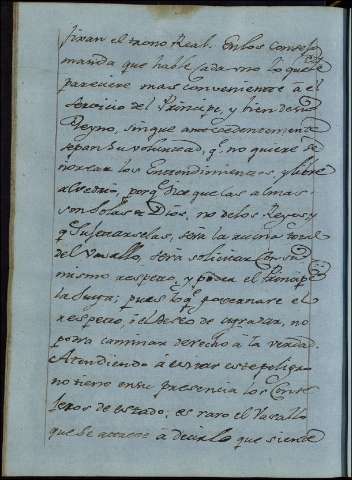 fixan el trono Real. En los Consejos
manda que hable cada uno lo que le
pareciere mas conveniente à el
servicio del Principe, y bien de su
Reyno, sin que antecedentemente
sepan su voluntad, q.e no quiere se
ñorear los Entendimientos, y libre
alvedrio, porq.e dice que las almas
son solas de Dios, no de los Reyes y
q.e sujetarselas, será la ruina total
del Vasallo, será solicitar con su
mismo respeto, y poder el Principe
la suya; pues lo q.e governare el
respeto, ò el deseo de agradar, no
podra caminar derecho à la verdad.
Atendiendo à evitar este peligro
no tiene en su presencia los Conse
jeros de estado; es raro el Vasallo
que se atreve à decirlo que siente